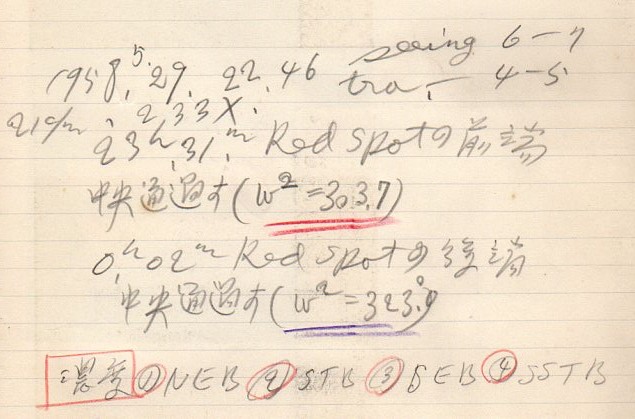 1958, 5. 29. 22. 46 seeing 6-7
21cm, 233X. tra, — 4-5
23h,31,m Red spotの前端
中央通過す(W²=303.7)
0,h02m Red spotの後端
中央通過す(W²=323.°9)
濃度 ①NEB ②STB ③SEB ④SSTB